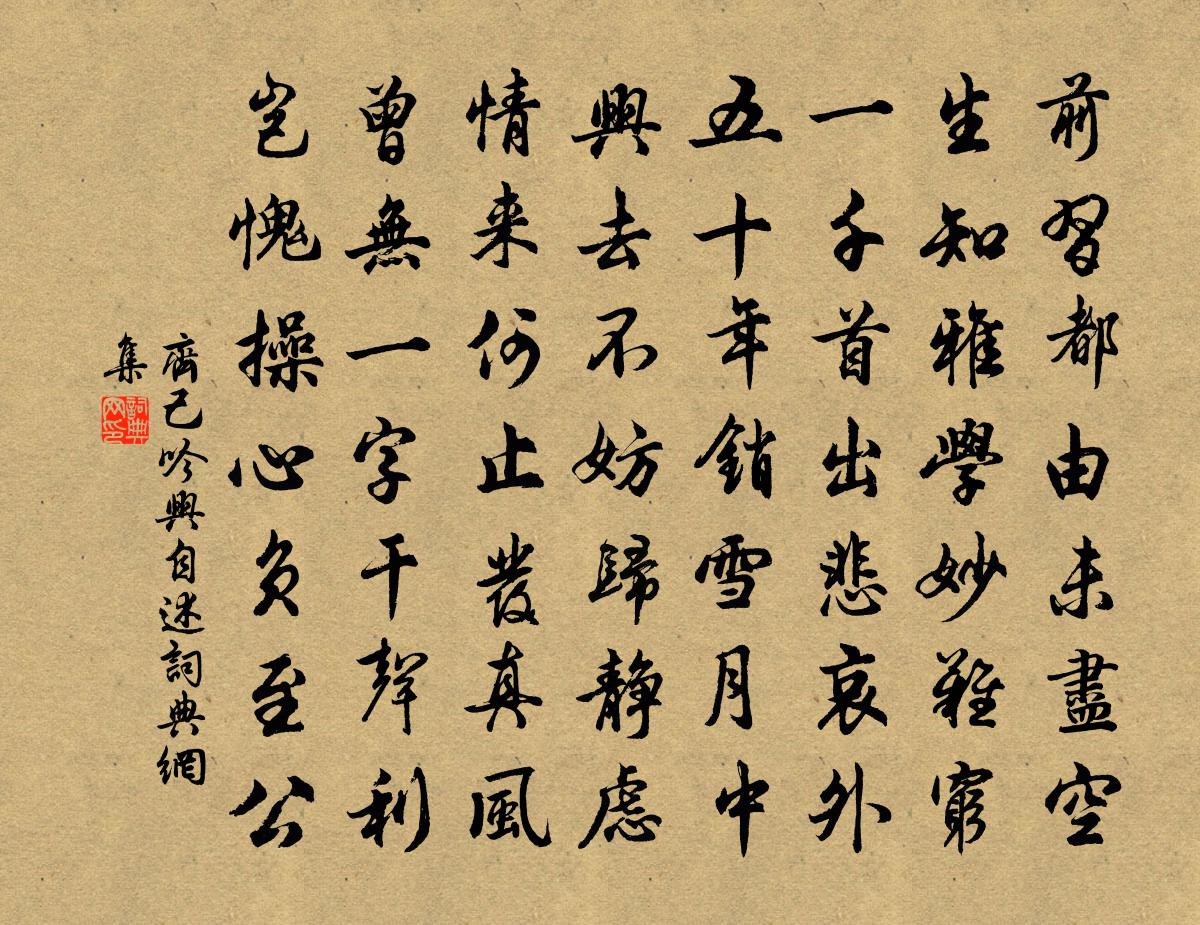 前習都由未盡空
生知雅學妙難窮
一千首出悲哀外
五十年銷雪月中
興去不妨歸靜慮
情来何止發真風
曾無一字干聲利
岂愧操心負至公
齊己吟興自述詞典網
集
詞典网印